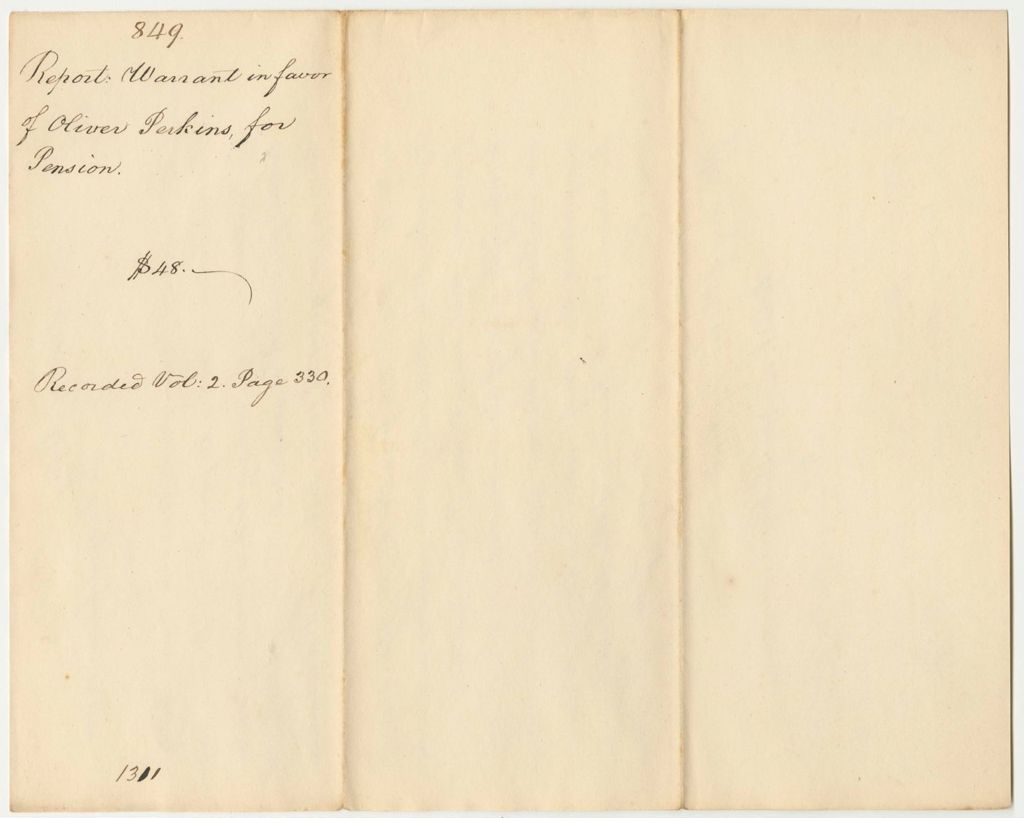 849.
Report: Warrant in favor
of Oliver Perkins, for
Pension.
$48.—
Recorded Vol: 2. Page 330.
1311